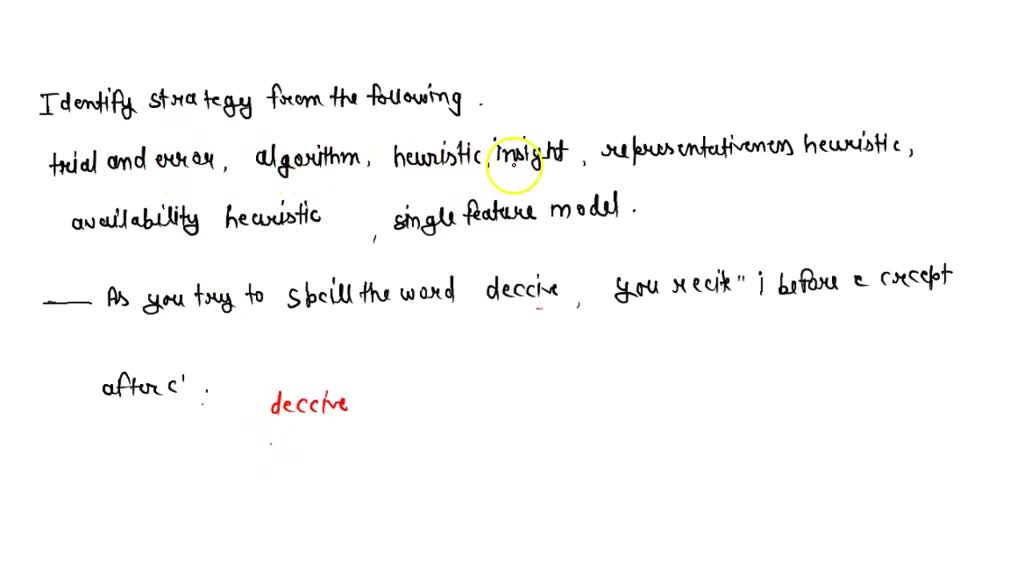 Identify strategy from the following .
trial and error, algorithm, heuristic, insight, representativeness heuristic,
availability heuristic , single feature model.
— As you try to speill the word deceive, you recite "i before e except
after c' .
deceive